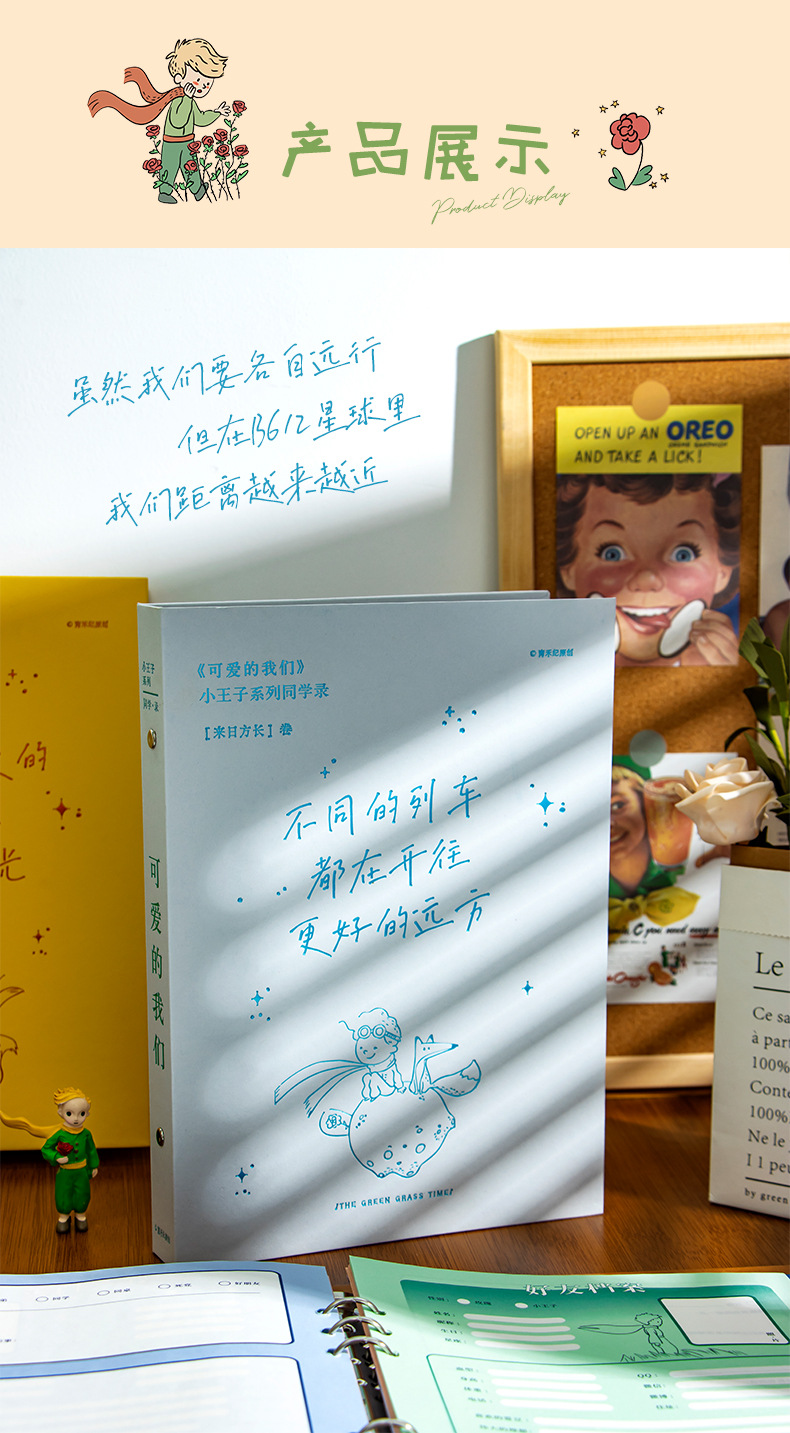 产品展示
Product Display
虽然我们要各自远行
但在B612星球里
我们距离越来越近
OPEN UP AN OREO
AND TAKE A LICK!
© 青禾纪原创
小王子
系列
同学·录
可爱的我们
《可爱的我们》
小王子系列同学录
[来日方长] 卷
© 青禾纪原创
不同的列车
都在开往
更好的远方
THE GREEN GRASS TIME
的
光
Le
Ce sa
à part
100%
Conte
100%
Ne le
I l peu
by green
同学
同桌
死党
好朋友
好友档案
性别：
玫瑰
小王子
姓名：
昵称：
生日：
星座：
照
片
QQ：
微信：